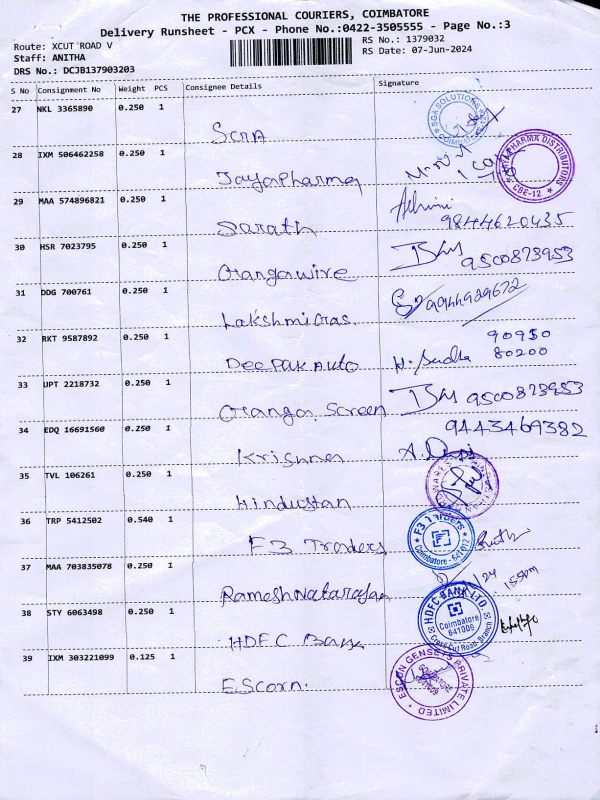 THE PROFESSIONAL COURIERS, COIMBATORE
Delivery Runsheet - PCX - Phone No.:0422-3505555 - Page No.:3
Route: XCUT ROAD V
RS No.: 1379032
Staff: ANITHA
RS Date: 07-Jun-2024
DRS No.: DCJB137903203
S No Consignment No Weight PCS Consignee Details Signature
27 NKL 3365890 0.250 1
SGA SOLUTIONS
28 IXM 506462258 0.250 1
Jayapharma
PHARMA DISTRIBUTORS
CBE-12
29 MAA 574896821 0.250 1
Sarath
Ashwini
9844620435
30 HSR 7023795 0.250 1
Orangawire
9500873953
31 DDG 700761 0.250 1
Lakshmi Gas.
9944929672
32 RKT 9587892 0.250 1
Deepak Auto
H. Sudha
90950
80200
33 UPT 2218732 0.250 1
Oranga Screen
9500873953
34 EDQ 16691560 0.250 1
Krishna
9443469382
A. Devi
35 TVL 106261 0.250 1
Hindustan
36 TRP 5412502 0.540 1
F3 Traders
F3 Traders
Coimbatore - 641012
37 MAA 703835078 0.250 1
Ramesh Natarajan
38 STY 6063498 0.250 1
HDFC Bank
HDFC BANK LTD.
Coimbatore
641009
Cross Cut Road Branch
39 IXM 303221099 0.125 1
Escorn.
ESCON GENSETS PRIVATE LIMITED